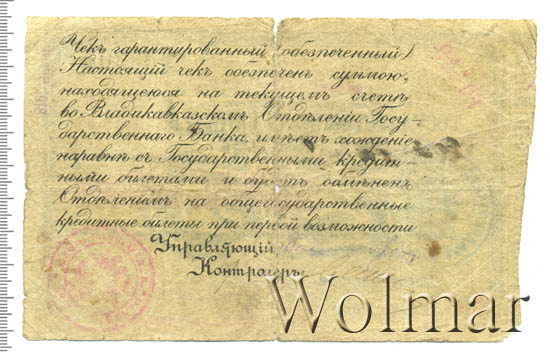 Чекъ гарантированный (обезпеченный)
Настоящiй чек обезпечен суммою,
находящеюся на текущемъ счетѣ
во Владикавказскомъ Отдѣленiи Госу-
дарственнаго Банка, имѣетъ хожденiе
наравнѣ съ Государственными кредит-
ными билетами и будетъ замѣненъ
Отдѣленiемъ на общегосударственные
кредитные билеты при первой возможности
Управляющiй
Контролеръ
Wolmar